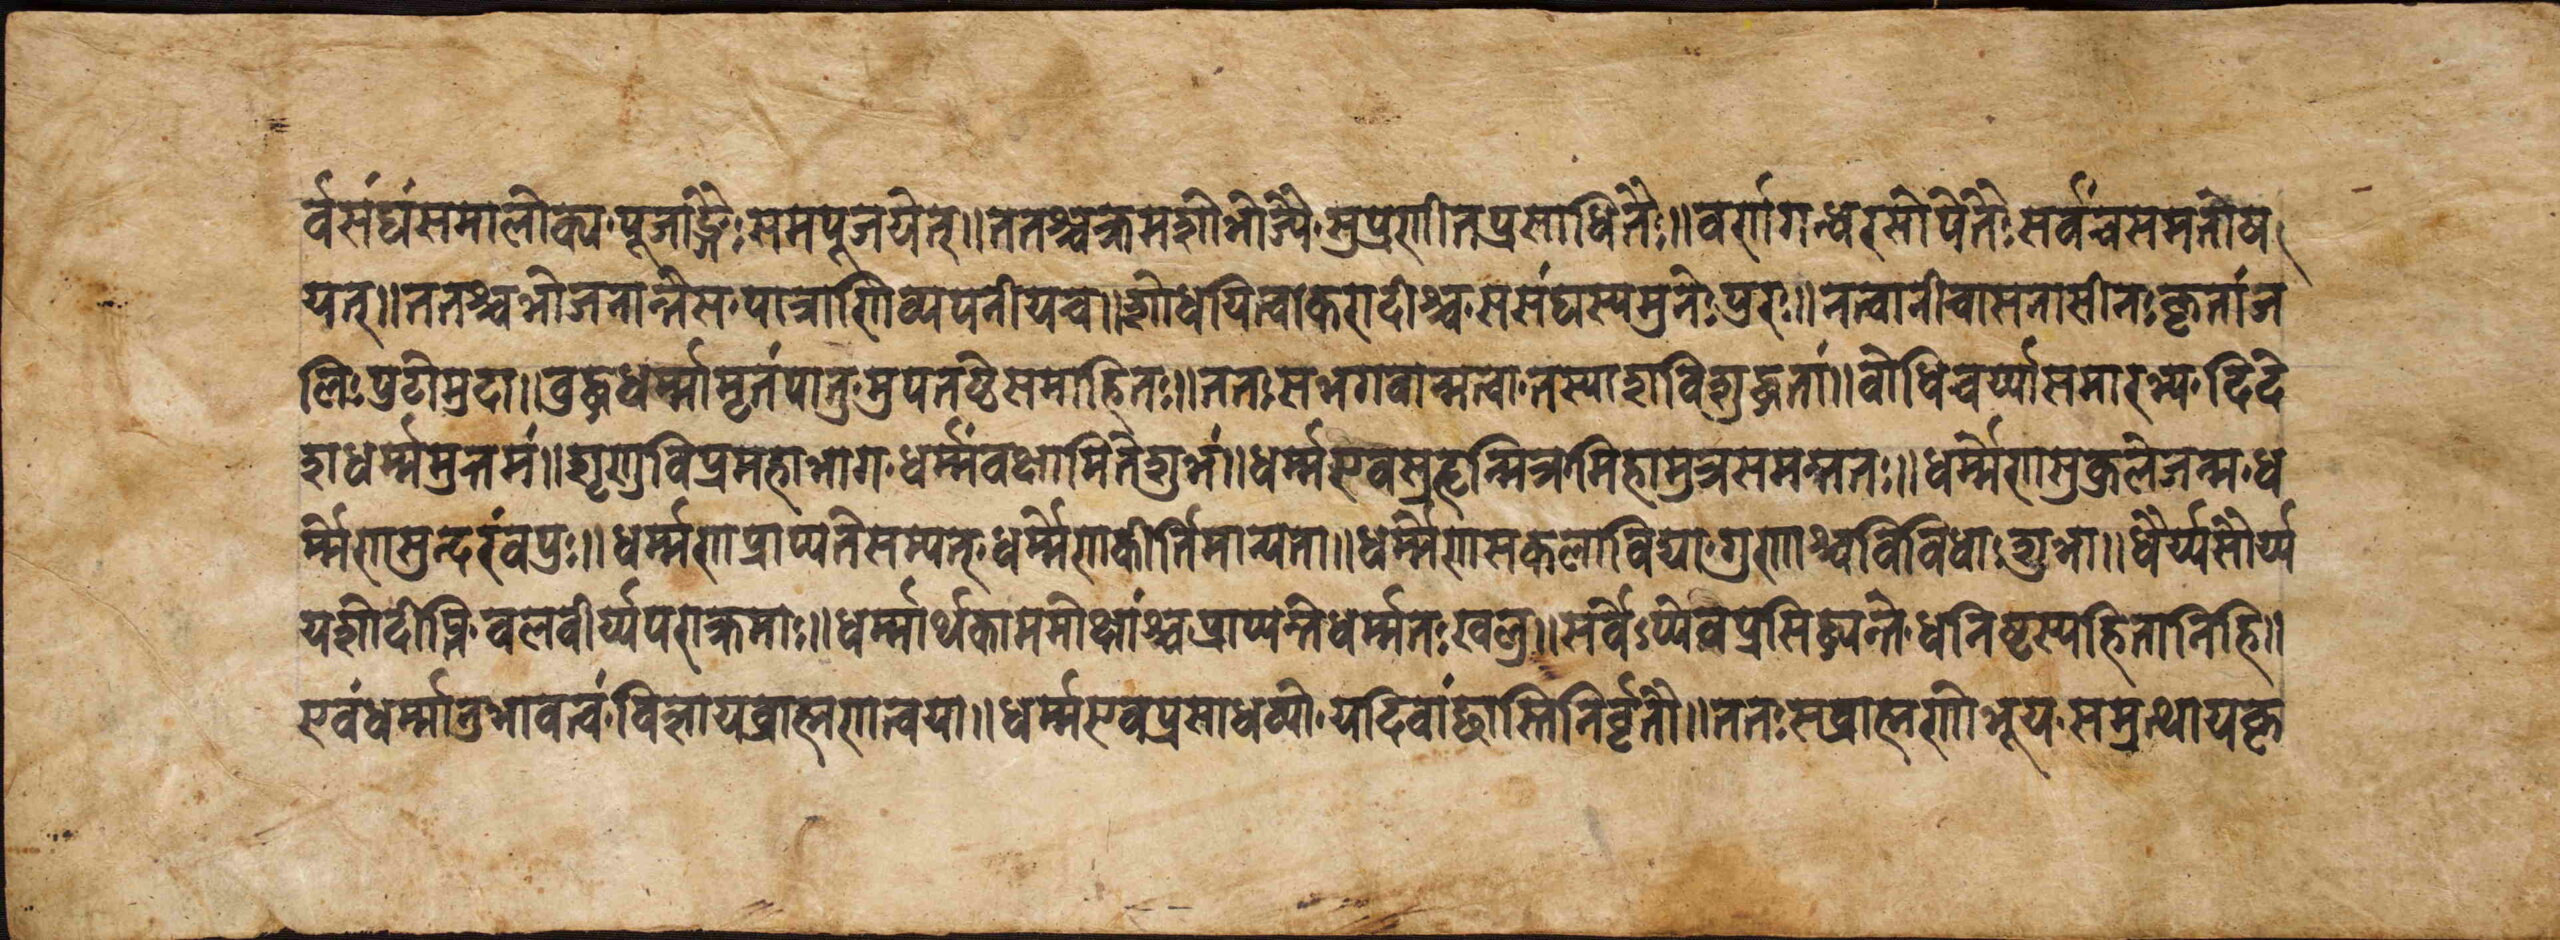 र्वसंघंसमालोक्य॰पूजाङ्गैःसमपूजयेत्॥ततश्चक्रमशोभोज्यैःसुप्रणीतप्रसाधितैः॥वर्णगन्धरसोपेतैःसर्वंचसमतोष
यत्॥ततश्चभोजनान्तेस॰पात्राणिव्यपनीयच॥शोधयित्वाकरादीश्च॰ससंघस्यमुनेःपुरः॥नत्वानीचासनासीनःकृतांज
लिःपुटोमुदा॥बुद्धधर्म्मामृतंपातु॰मुपतष्ठेसमाहितः॥ततःसभगवान्मत्वा॰तस्याशविशुद्धतां॥बोधिचर्य्यासमारभ्य॰दिदे
शधर्म्ममुत्तमं॥शृणुविप्रमहाभाग॰धर्म्मंवक्षामितेशुभं॥धर्म्मएवसुहृन्मित्र॰मिहामुत्रसमन्मतः॥धर्म्मेणसुकुलेजन्म॰ध
र्म्मेणसुन्दरंवपुः॥धर्म्मणप्राप्यतेसम्पत्॰धर्म्मेणकीर्तिमान्यता॥धर्म्मेणसकलाविद्या॰गुणाश्चविविधाःशुभा॥धैर्य्यसौर्य्य
यशोदीप्ति॰वलवीर्य्यपराक्रमाः॥धर्म्मार्थकाममोक्षांश्चप्राप्यन्तेधर्म्मतःखलु॥सर्वेःप्येवप्रसिद्ध्यन्ते॰धनिष्टस्यहितानिहि॥
एवंधर्म्मानुभावत्वं॰विज्ञायब्राह्मणत्वया॥धर्म्मएवप्रसाधव्यो॰यदिवांछास्तिनिर्वृतौ॥ततःसब्राह्मणोभूय॰समुत्थायकृ